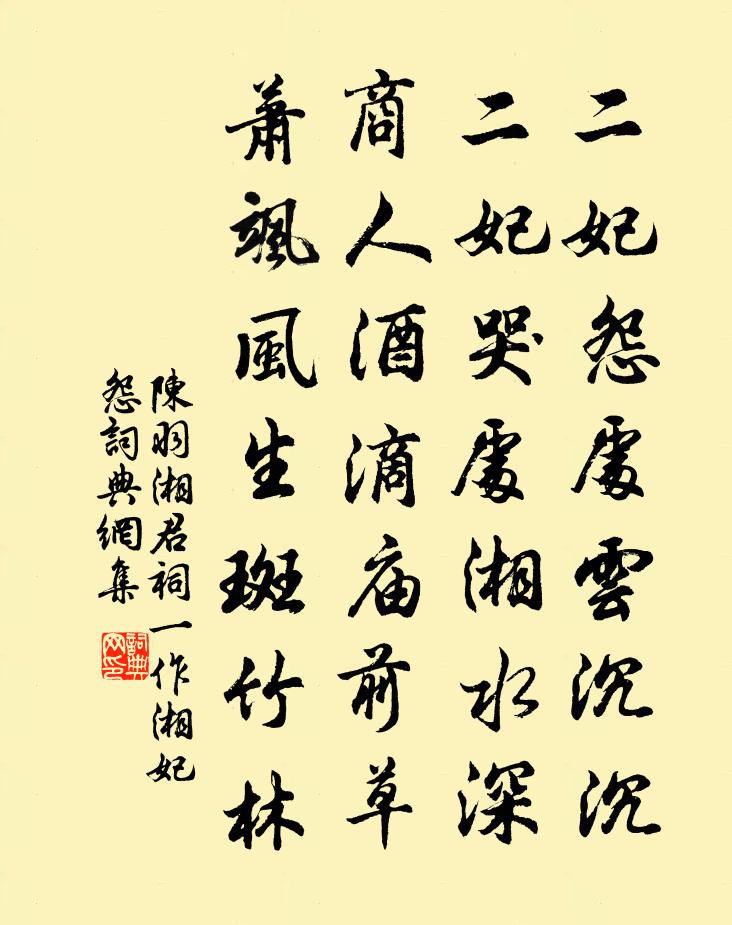 二妃怨處雲沉沉
二妃哭處湘水深
商人酒滴庙前草
萧颯風生斑竹林
陳羽湘君祠一作湘妃
怨詞典網集
詞典
网印